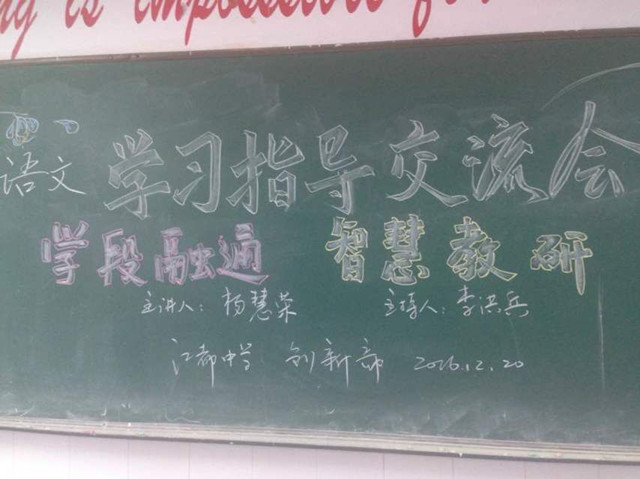 ng is impossible for
语文 学习指导交流会
学段融通 智慧教研
主讲人：杨慧荣 主持人：李洪兵
江都中学 创新部 2016.12.20